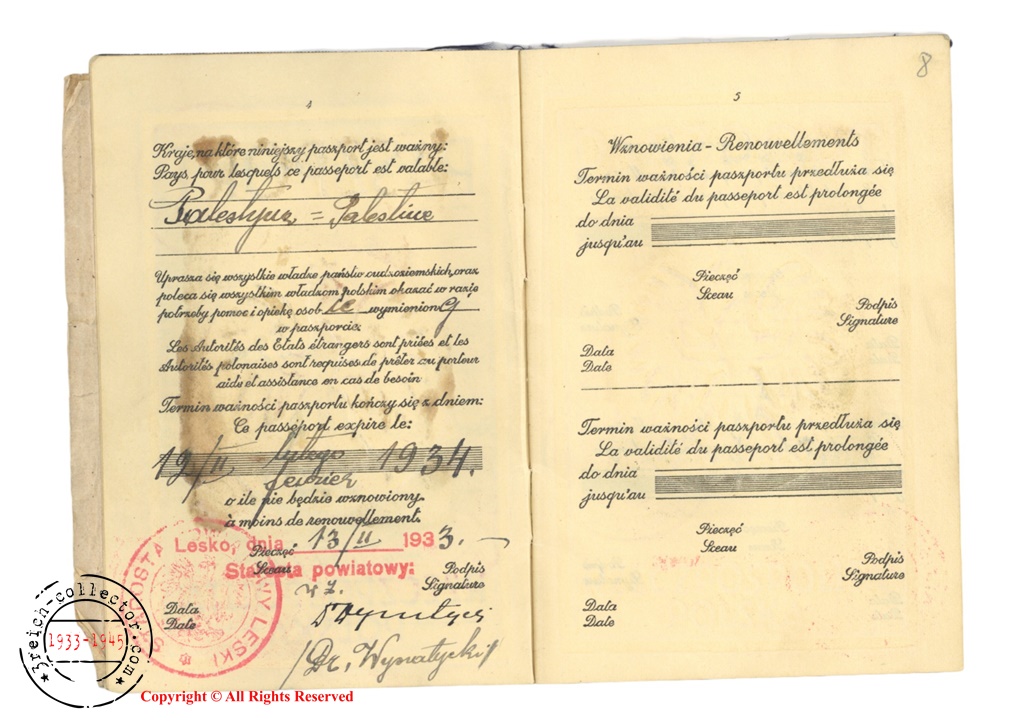 4
Kraje, na które niniejszy paszport jest ważny:
Pays, pour lesquels ce passeport est valable:
Palestyna = Palestine
Uprasza się wszystkie władze państw cudzoziemskich, oraz
poleca się wszystkim władzom polskim okazać w razie
potrzeby pomoc i opiekę osobie wymienionej
w paszporcie.
Les Autorités des Etats étrangers sont priées et les
Autorités polonaises sont requises de prêter au porteur
aide et assistance en cas de besoin
Termin ważności paszportu kończy się z dniem:
Ce passeport expire le:
12/II lutego 1934.
fevrier
o ile nie będzie wznowiony.
à moins de renouvellement.
Lesko, dnia 13/II 1933.
Pieczęć
Sceau
Starosta powiatowy:
Podpis
Signature
w z.
Data
Date
/Dr. Wynatycki/
STAROSTA POWIATOWY LESKI
8
5
Wznowienia - Renouvellements
Termin ważności paszportu przedłuża się
La validité du passeport est prolongée
do dnia
jusqu'au
Pieczęć
Sceau
Podpis
Signature
Data
Date
Termin ważności paszportu przedłuża się
La validité du passeport est prolongée
do dnia
jusqu'au
Pieczęć
Sceau
Podpis
Signature
Data
Date
3reich-collector.com
1933-1945
Copyright © All Rights Reserved